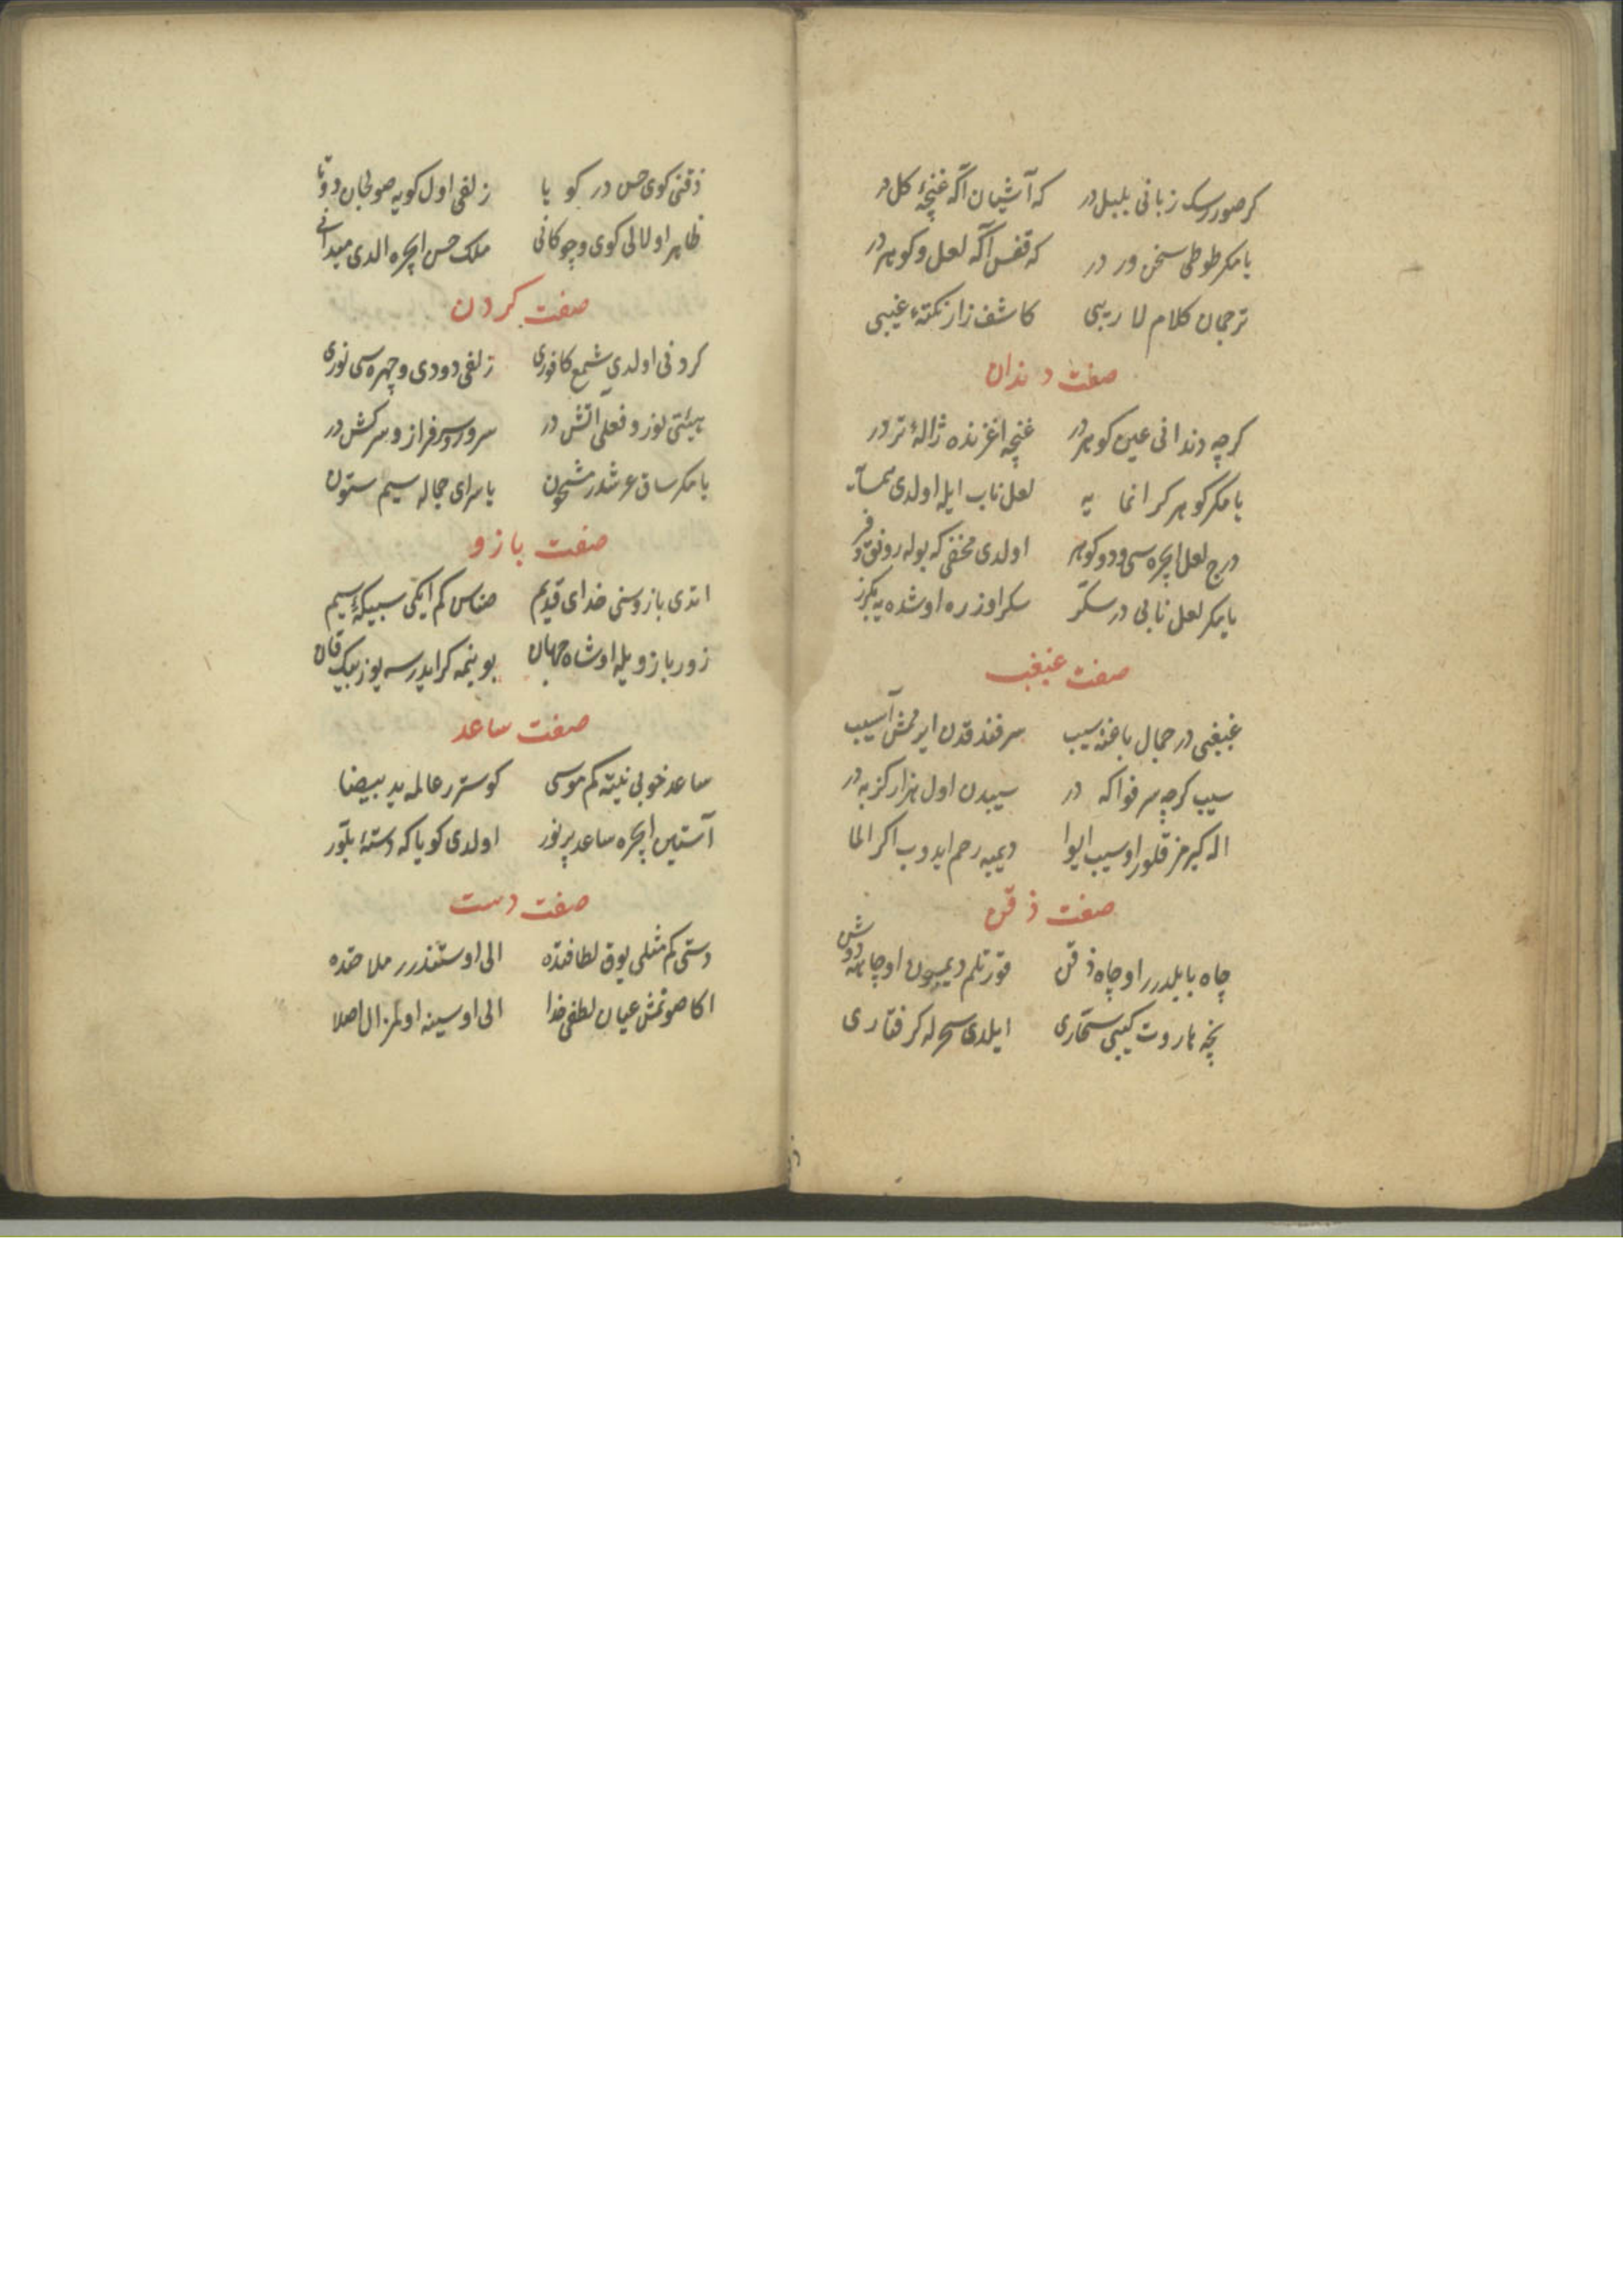 كر صورر سك زبانى بلبل در كه آشيان اكه غنچهٔ كل در
يا مكر طوطى سخن ور در كه قفس اكه لعل و كوهر در
ترجمان كلام لا ريبى كاشف راز نكتهٔ غيبى
صفت دندان
كرچه دندانى عين كوهر در غنچه اغزنده ژالهٔ تر در
يا مكر كوهر كرانمايه لعل ناب ايله اولدى همسايه
درج لعل ايچره سى و دو كوهر اولدى مخفى كه بوله رونق و فر
يا مكر لعل نابى در سكر سكر اوزره اوشده يه بكزر
صفت غبغب
غبغبى در جمال باغنه سيب سر قند قدن ايرمش آسيب
سيب كرچه سر فواكه در سيبدن اول هزار كز به در
اله كيرمز قلور او سيب ايوا ديميه رحم ايدوب اكر الما
صفت ذقن
چاه بابلدرر او چاه ذقن قورتلم ديميون او چاهه دوشن
نچه هاروت كيبى سحارى ايلدى سحر له كرفتارى
ذقنى كوى حسن در كويا زلفى اول كويه صولجان دوتا
ظاهر اولالى كوى و چوكانى ملك حسن ايچره الدى ميدانى
صفت كردن
كردنى اولدى شمع كافورى زلفى دودى و چهره سى نورى
هيئتى نور و فعلى اتش در سرور و سرفراز و سركش در
يا مكر ساق عرشدر شبحون يا سراى جماله سيم ستون
صفت بازو
اتدى بازوسنى خداى قديم صناس كم ايكى سبيكهٔ سيم
زور بازو يله او شاه جهان بوينمه كر ايدرسه يوز بيك قان
صفت ساعد
ساعد خوبى نيته كم موسى كوستر عالمه يد بيضا
آستين ايچره ساعد پر نور اولدى كويا كه دستهٔ بلور
صفت دست
دستى كم مثلى يوق لطافتده الى اوستندرر ملاحتده
اكا صونمش عيان لطفى خدا الى اوسينه اولمز ال اصلا